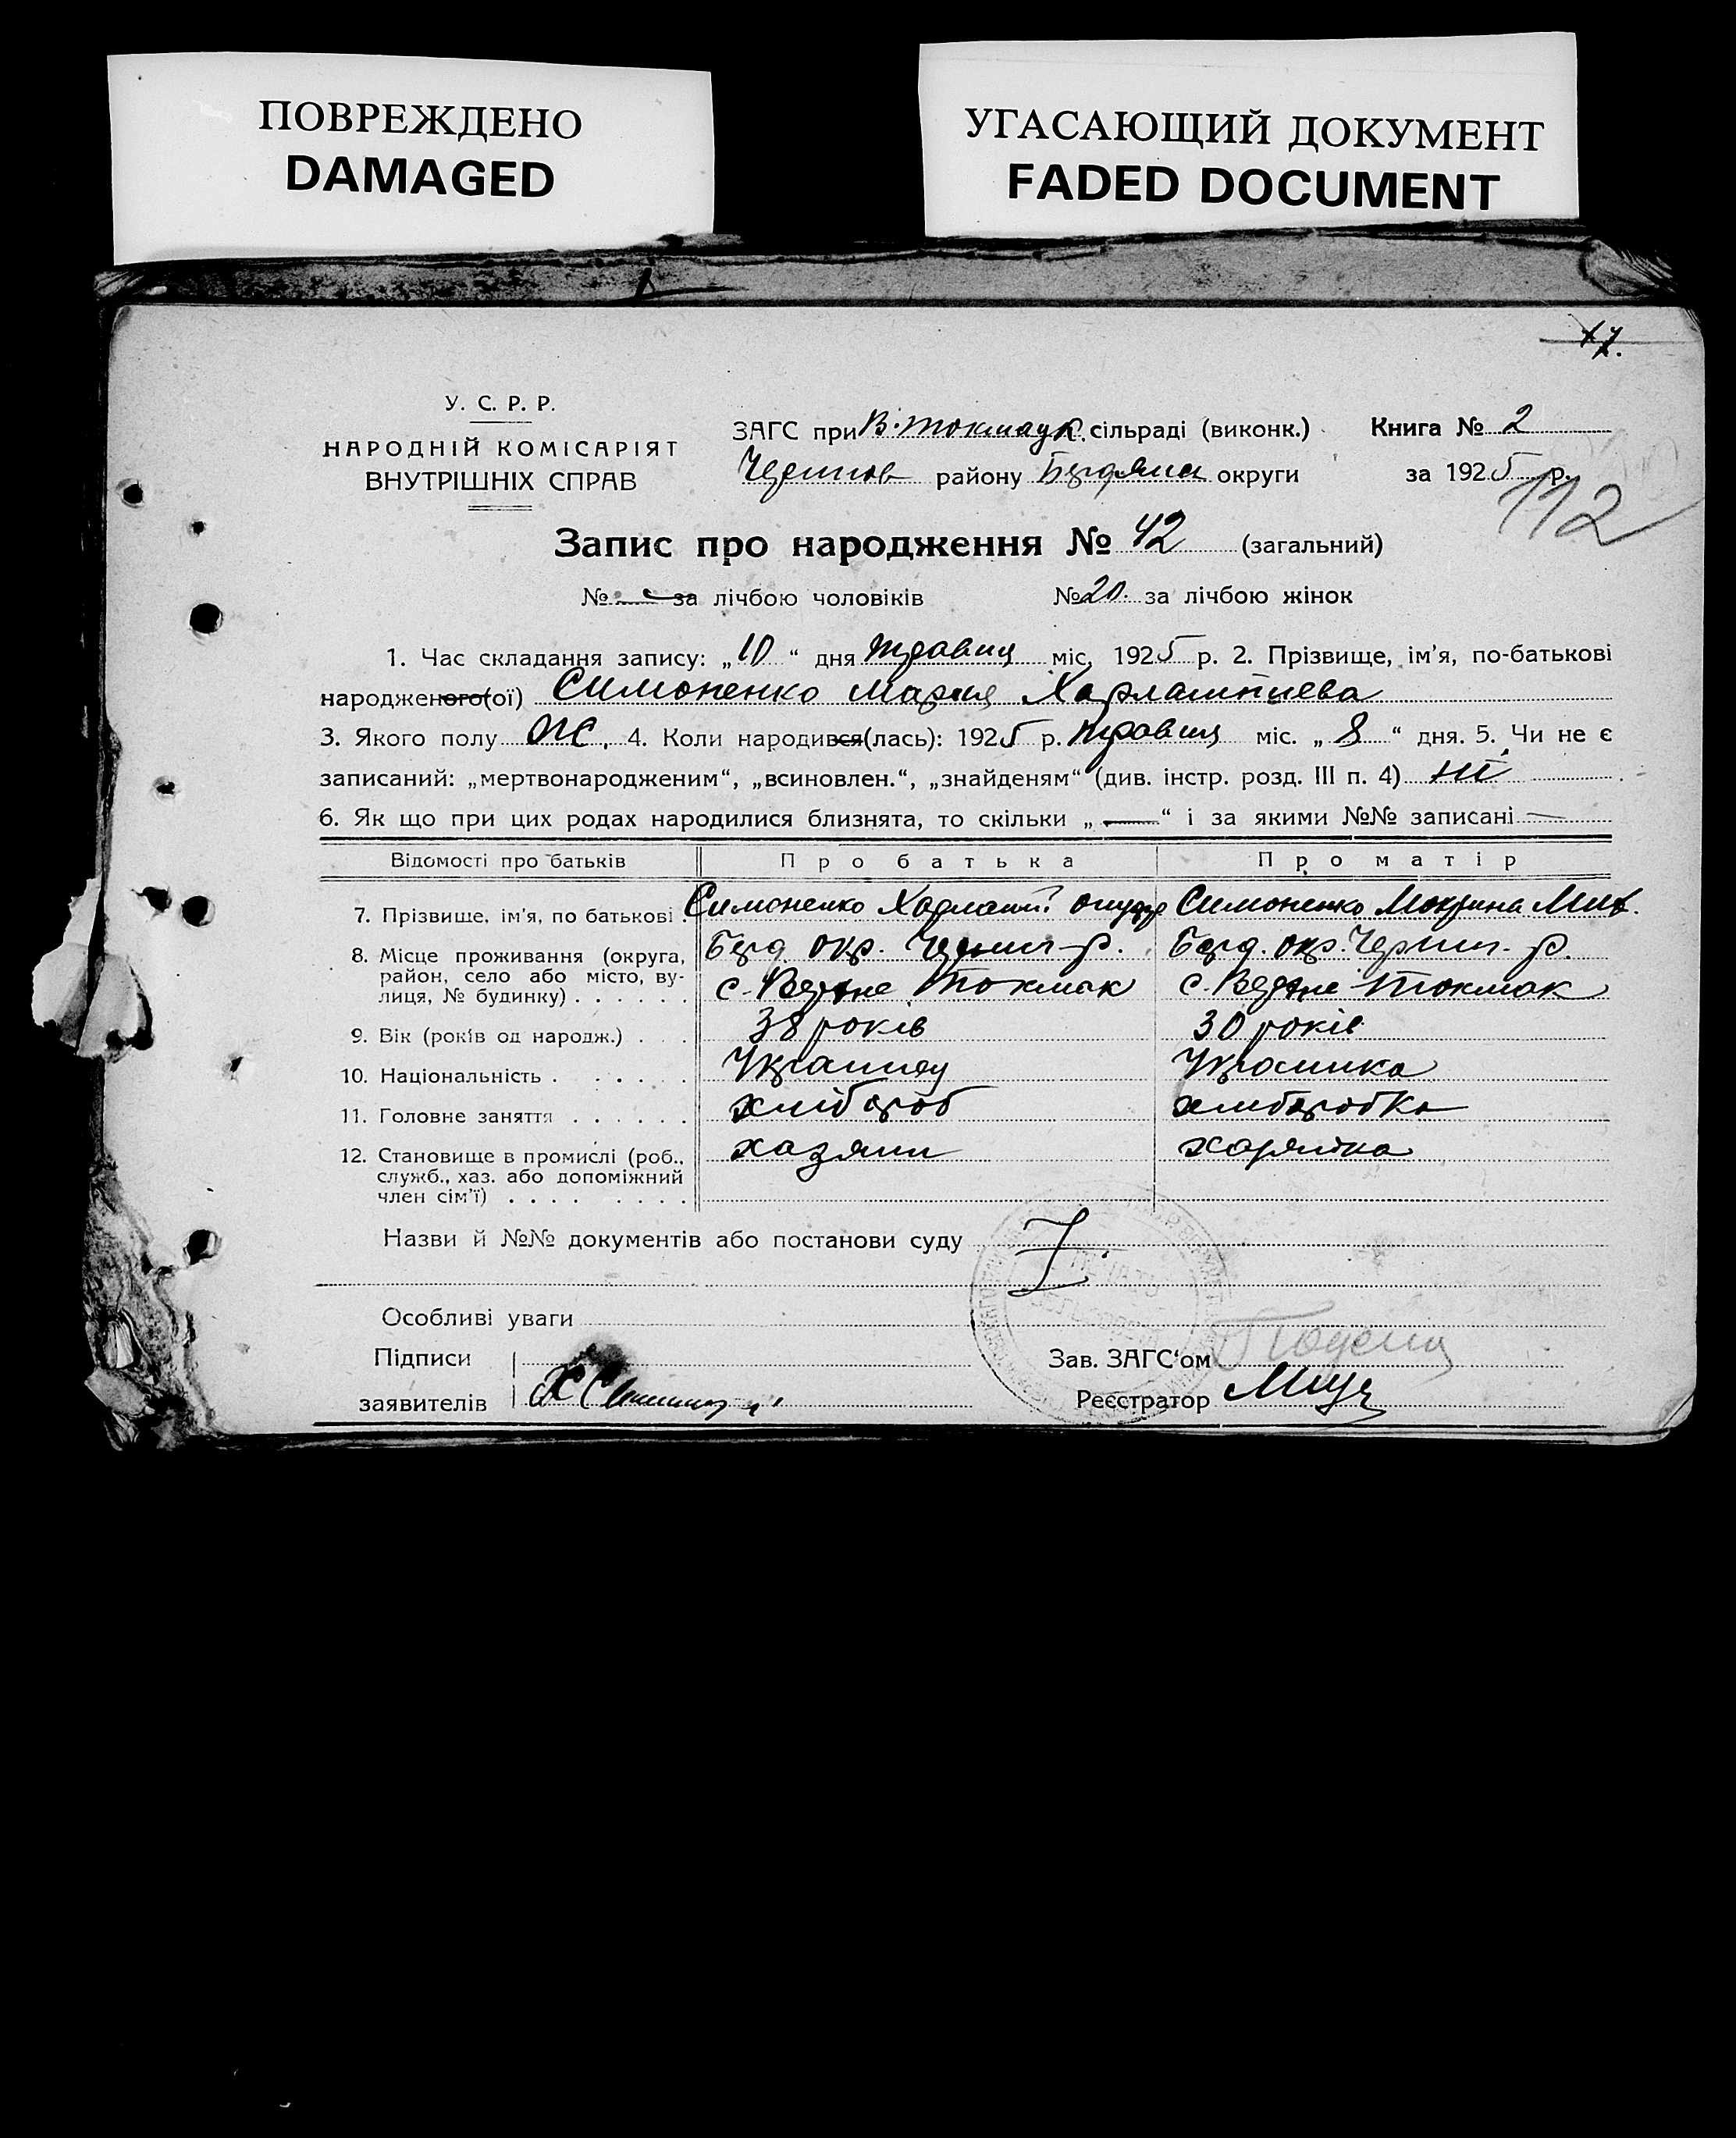 ПОВРЕЖДЕНО
DAMAGED
УГАСАЮЩИЙ ДОКУМЕНТ
FADED DOCUMENT
17.
У. С. Р. Р.
НАРОДНІЙ КОМІСАРІЯТ
ВНУТРІШНІХ СПРАВ
ЗАГС при В. Токмацк. сільраді (виконк.)
Черниг району Бердянськ округи
Книга № 2
за 1925 р.
112
Запис про народження № 42 (загальний)
№ — за лічбою чоловіків №20. за лічбою жінок
1. Час складання запису: „10“ дня травня міс. 1925 р. 2. Прізвище, ім’я, по-батькові
народженого(ої) Симоненко Мария Харлампиева
3. Якого полу Ж. 4. Коли народився(лась): 1925 р. травня міс. „8“ дня. 5. Чи не є
записаний: „мертвонародженим“, „всиновлен.“, „знайденям“ (див. інстр. розд. III п. 4) ні
6. Як що при цих родах народилися близнята, то скільки „—“ і за якими №№ записані —
Відомості про батьків Про батька Про матір
7. Прізвище, ім’я, по батькові. Симоненко Харламп. Симоненко Мокрина Мит.
8. Місце проживання (округа, район, село або місто, вулиця, № будинку) Берд. окр. Черниг. р. Берд. окр. Черниг. р.
с. Верхнє Токмак с. Верхнє Токмак
9. Вік (років од народж.) 38 років 30 років
10. Національність Українец Українка
11. Головне заняття хлібороб хліборобка
12. Становище в промислі (роб., служб., хаз. або допоміжний член сім’ї) хазяин хазяйка
Назви й №№ документів або постанови суду
Особливі уваги
Підписи
заявителів
Зав. ЗАГС‘ом
Реєстратор